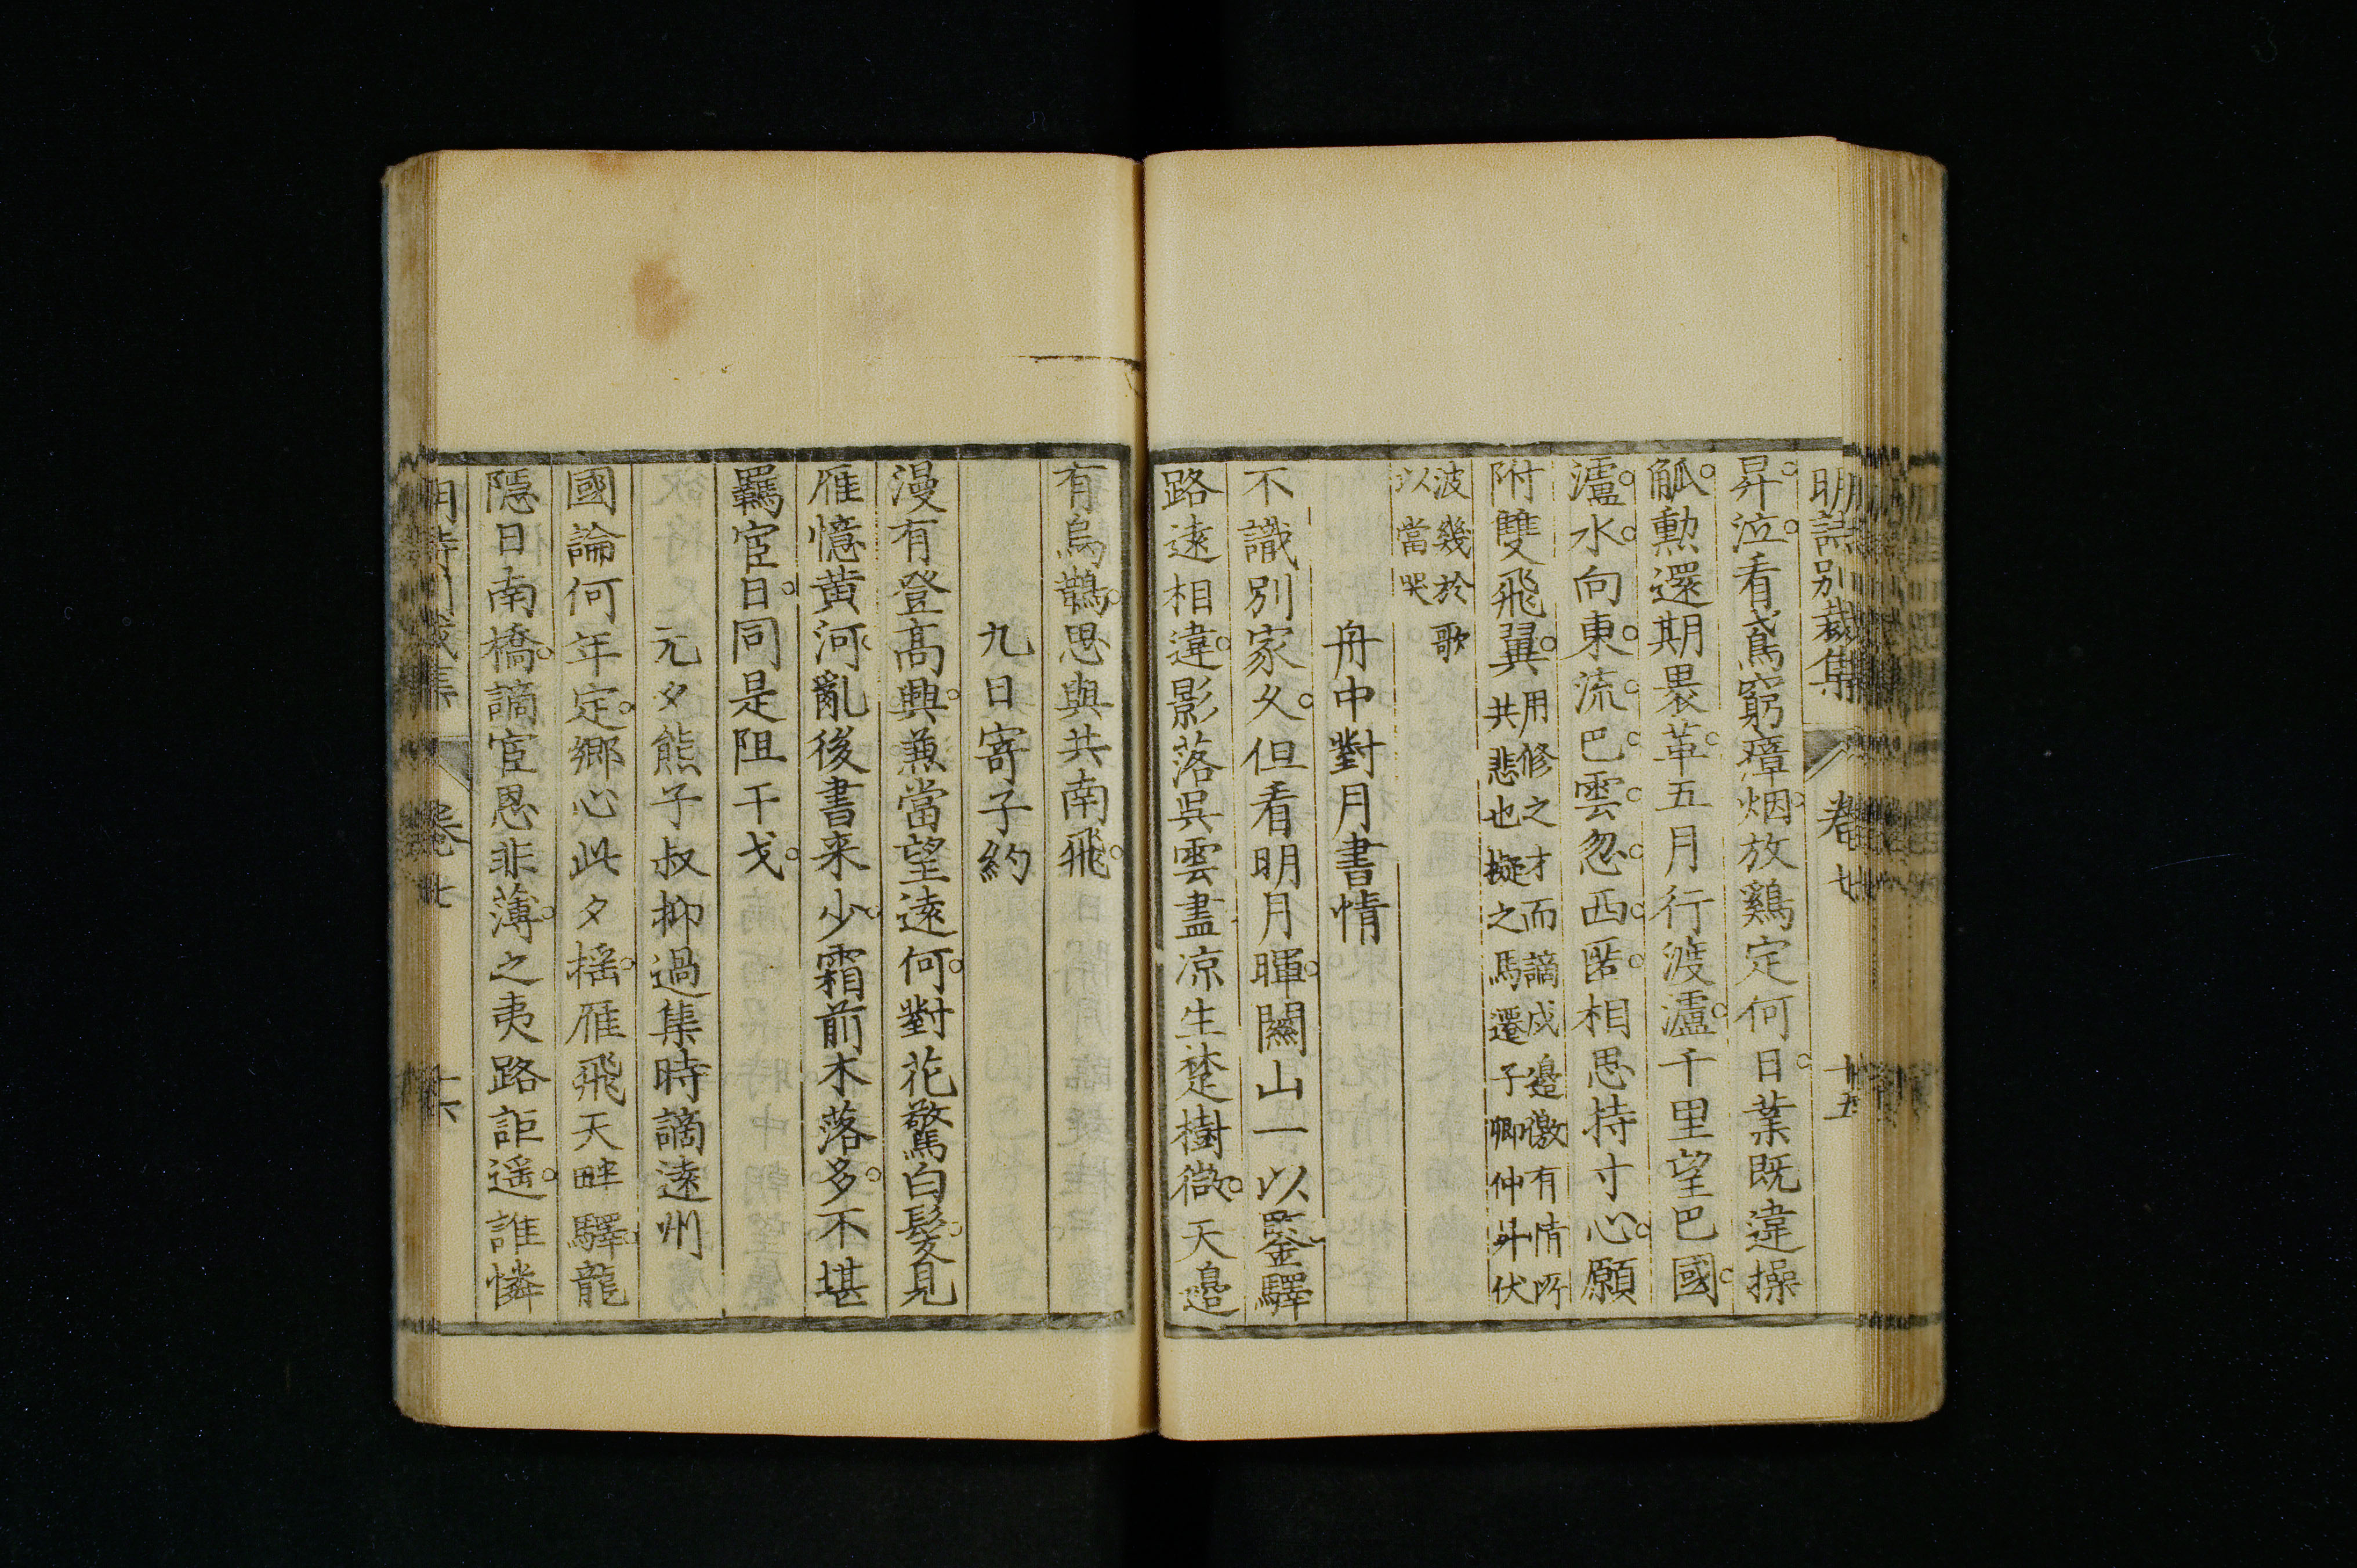 明詩別裁集 卷廿 十五
昇泣看鳶窮瘴烟放鷄定何日葉既違操
觚勲還期畏革五月行渡瀘千里望巴國
瀘水向東流巴雲忽西匿相思持寸心願
附雙飛翼用修之才而謫戍邉徼有情所
共悲也擬之馬遷子卿仲升伏
波幾於歌
以當哭
舟中對月書情
不識別家久但看明月暉關山一以鑒驛
路遠相違影落呉雲盡凉生楚樹微天邉
有烏鵲思與共南飛
九日寄子約
漫有登高興兼當望遠何對花驚白髮見
雁憶黄河亂後書来少霜前木落多不堪
羈宦日同是阻干戈
元夕熊子叔抑過集時謫遠州
國論何年定郷心此夕揺雁飛天畔驛龍
隱日南橋謫宦恩非薄之夷路詎遥誰憐
集 卷 十六